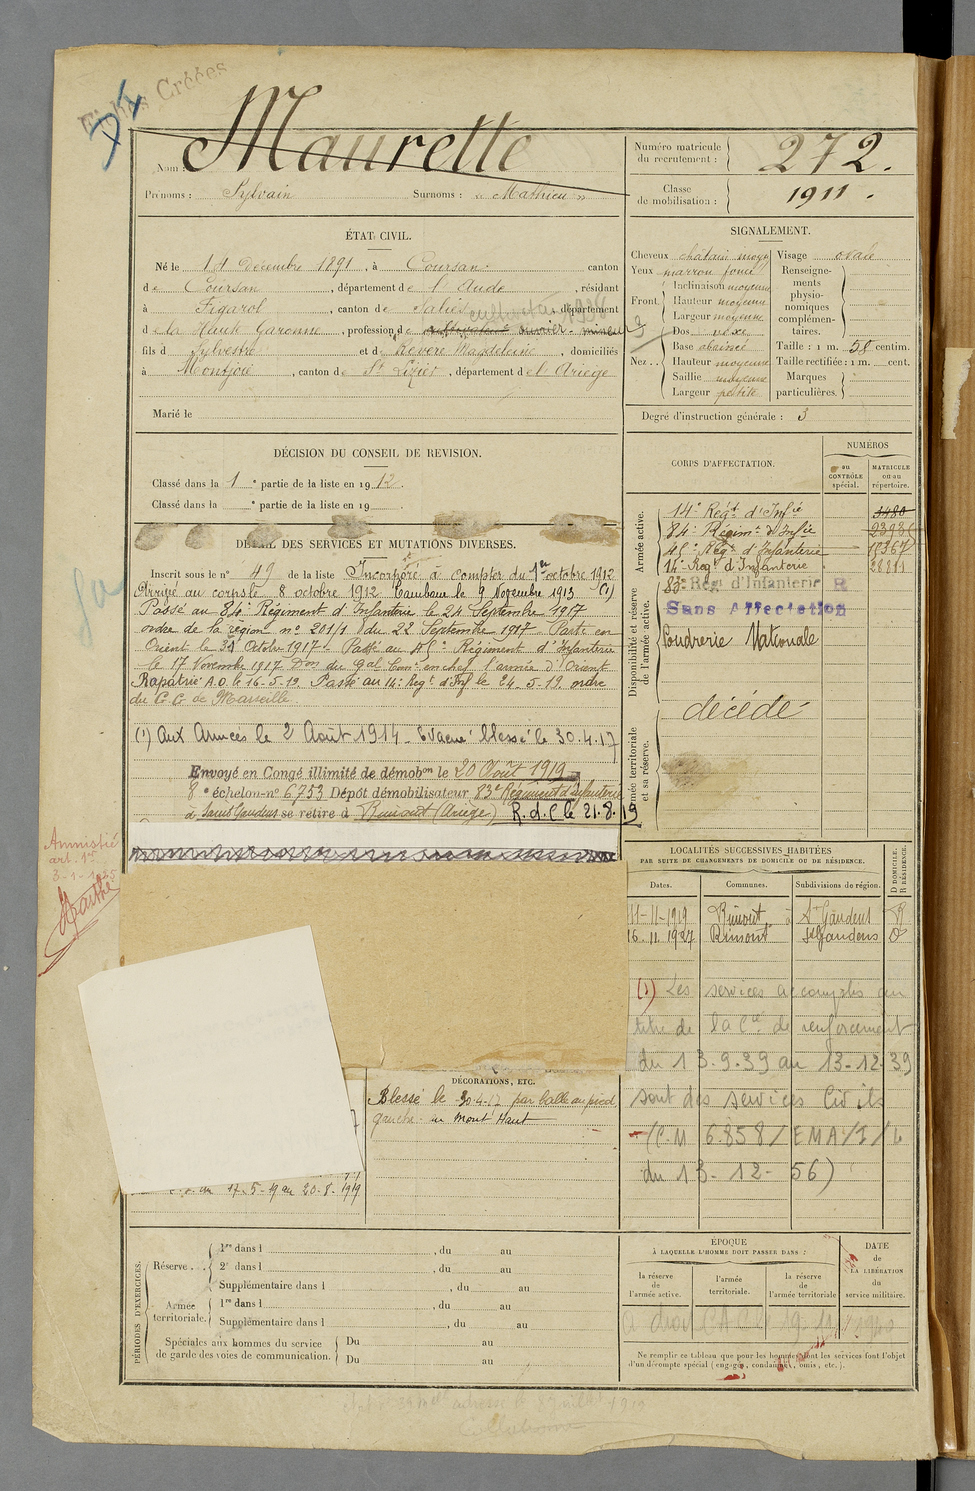 Fiches Créées
Nom : Maurette
Prénoms : Sylvain Surnoms : « Mathieu »
Numéro matricule du recrutement : 272.
Classe de mobilisation : 1911.
ÉTAT CIVIL.
Né le 14 Décembre 1891, à Coursan canton
de Coursan, département de l'Aude, résidant
à Figarol, canton de Salies, département
d e la Haute Garonne, profession de cultivateur ouvrier-mineur
fils d Sylvestre et de Revere Magdeleine, domiciliés
à Montjoie, canton de St Lizier, département de l'Ariège
Marié le
SIGNALEMENT.
Cheveux châtain moyen
Yeux marron foncé
Front. Inclinaison moyenne
Hauteur moyenne
Largeur moyenne
Nez . . Dos vexe
Base abaissé
Hauteur moyenne
Saillie moyenne
Largeur petite
Visage ovale
Renseignements physionomiques complémentaires.
Taille : 1 m. 58 centim.
Taille rectifiée : 1 m. cent.
Marques particulières.
Degré d'instruction générale : 3
DÉCISION DU CONSEIL DE REVISION.
Classé dans la 1e partie de la liste en 1912.
Classé dans la e partie de la liste en 19
DÉTAIL DES SERVICES ET MUTATIONS DIVERSES.
Inscrit sous le n° 49 de la liste Incorporé à compter du 1er octobre 1912
Arrivé au corps le 8 octobre 1912 Tambour le 9 Novembre 1913 (1)
Passé au 84e Régiment d'Infanterie le 24 Septembre 1917
ordre de la région n° 201/1 du 22 Septembre 1917 Parti en
Orient le 31 Octobre 1917. Passé au 45e Régiment d'Infanterie
le 17 Novembre 1917. Don du Gal Comt en chef l'armée d'Orient
Rapatrié A.O. le 16-5-19. Passé au 14e Regt d'Inf le 24-5-19 ordre
du G. G. de Marseille.
(1) Aux Armées le 2 Août 1914 - Evacué blessé le 30.4.17
Envoyé en Congé illimité de démobon le 20 Août 1919
8e échelon-n° 6753 Dépôt démobilisateur 83e Régiment d'Infanterie
à Saint Gaudens se retire à Rimont (Ariège) R.d.C le 21.8.19
Amnistié
art. 1er
3-1-1925
CORPS D'AFFECTATION.
NUMÉROS
au CONTRÔLE spécial.
MATRICULE ou au répertoire.
Armée active.
14e Regt d'Infie 3480
84e Régim. d'Infie
45e Regt d'Infanterie
14e Regt d'Infanterie
Disponibilité et réserve de l'armée active.
83e Reg d'Infanterie R
Sans Affectation
Poudrerie Nationale
Armée territoriale et sa réserve.
décédé
LOCALITÉS SUCCESSIVES HABITÉES
PAR SUITE DE CHANGEMENTS DE DOMICILE OU DE RÉSIDENCE.
Dates. Communes. Subdivisions de région. D DOMICILE. R RÉSIDENCE.
11-11-1919 Rimont St Gaudens R
16.11.1927 Rimont St Gaudens D
(1) Les services accomplis au
titre de la Cie de renforcement
du 13.9.39 au 13-12-39
sont des services Civils
(C.M 6.858/EMA/I/L
du 13-12-56)
DÉCORATIONS, ETC.
Blessé le 30-4-17 par balle au pied
gauche au Mont Haut
du 17-5-19 au 20-8-1919
PÉRIODES D'EXERCICES.
Réserve . . 1re dans l , du au
2e dans l , du au
Supplémentaire dans l , du au
Armée territoriale. 1re dans l , du au
Supplémentaire dans l , du au
Spéciales aux hommes du service de garde des voies de communication. Du au
Du au
ÉPOQUE
À LAQUELLE L'HOMME DOIT PASSER DANS :
la réserve de l'armée active.
l'armée territoriale.
la réserve de l'armée territoriale
DATE de LA LIBÉRATION du service militaire.
Ne remplir ce tableau que pour les hommes dont les services font l'objet
d'un décompte spécial (engagés, condamnés, omis, etc.).